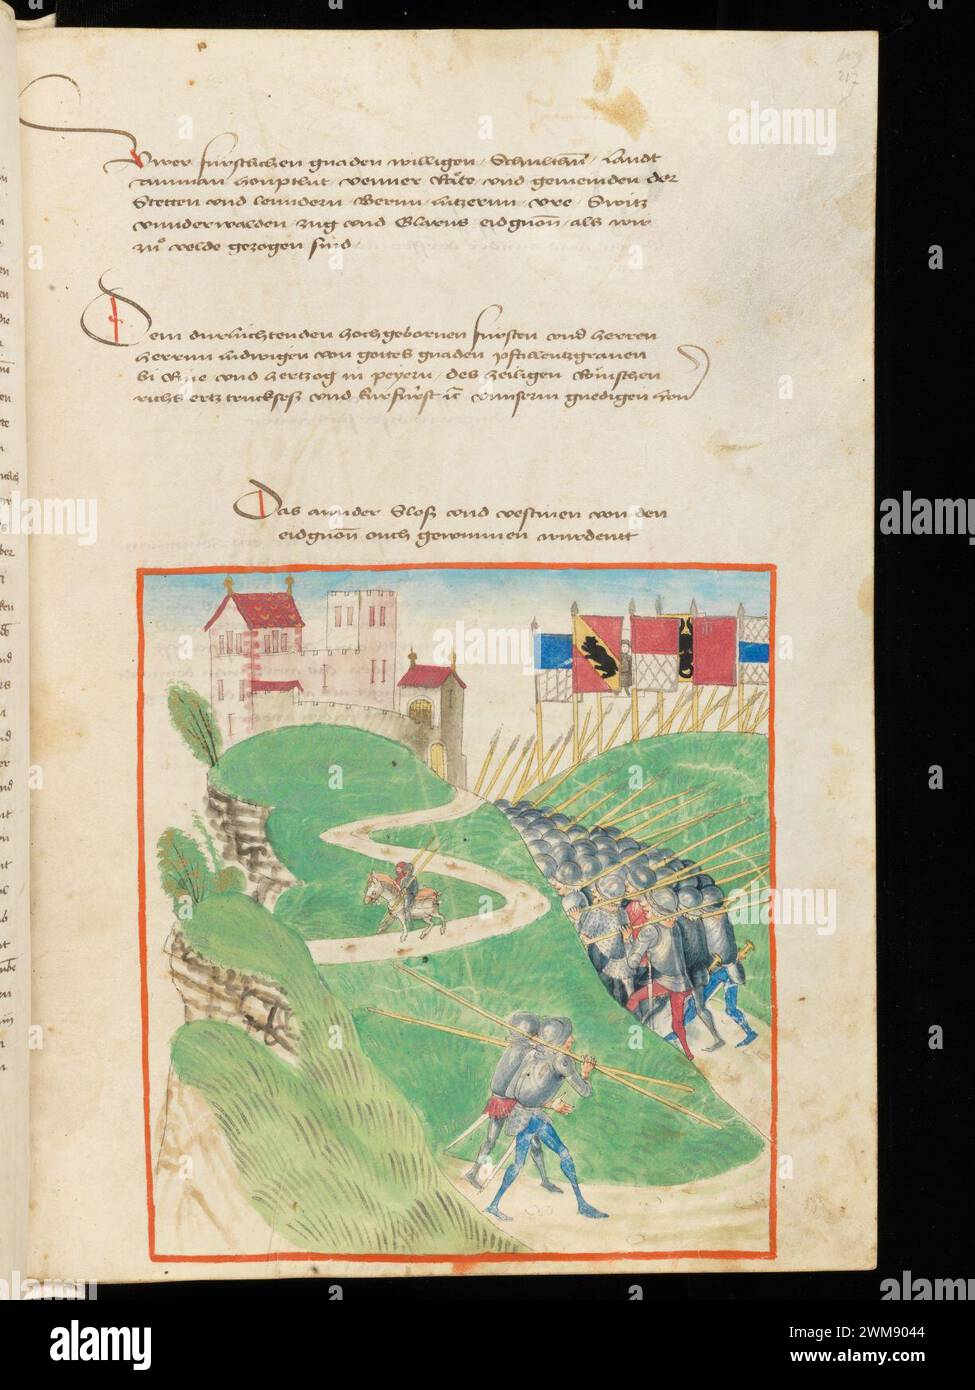 212
Uwer furstlichen gnaden willigen Schulthn̄ Landt
amman houptlüt venner Räte und gemeinden der
Stetten und lenndern Bernn lutzernn Ure Switz
Unnderwalden zug und Glarus eidgnon̄ als wir
zuͦ velde gezogen sind
Dem durluchtenden hochgebornen fursten und herren
herrnn ludwigen von gottes gnaden pfallentzgraven
bi Rine und hertzog in peyern des heiligen Römschen
richs ertz truckseß und kurfürst unnserm gnedigen hern
Das annder Sloß und vestinen von den
eidgnon̄ ouch gewunnen wurdentt
alamy
Image ID: 2WM9044
www.alamy.com